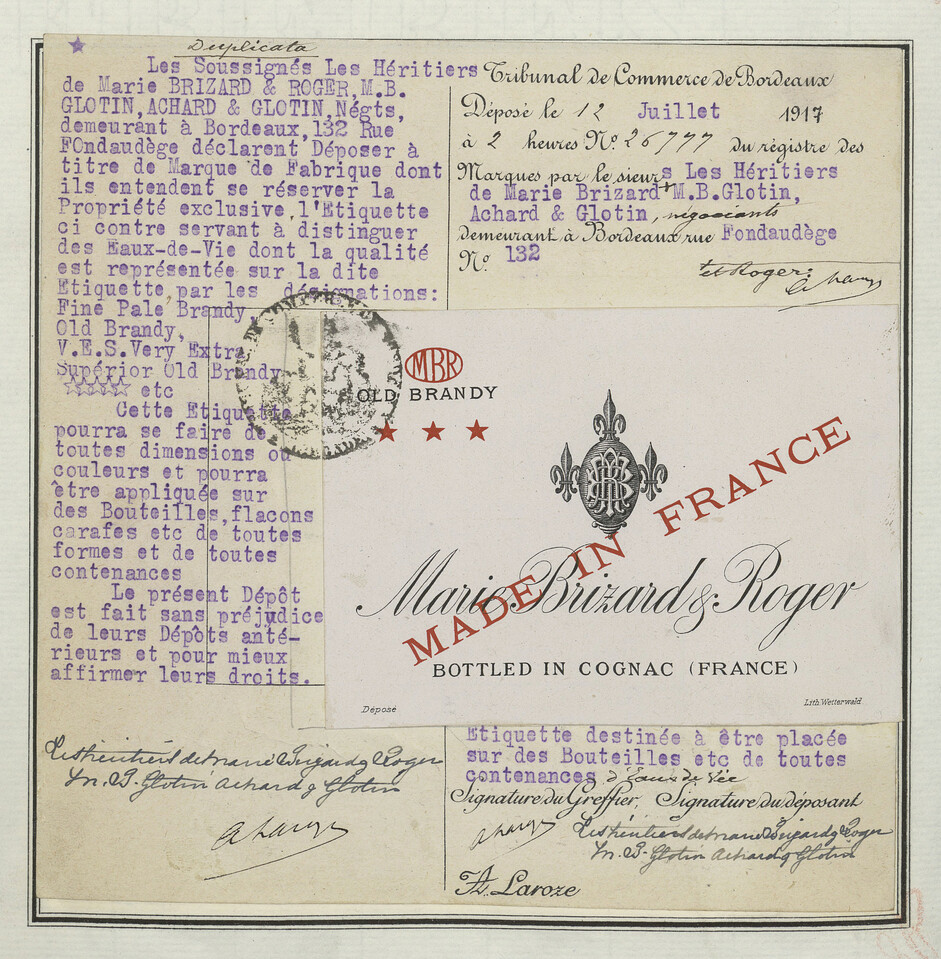 Duplicata
Les Soussignés Les Héritiers
de Marie BRIZARD & ROGER, M.B.
GLOTIN, ACHARD & GLOTIN, Négts,
demeurant à Bordeaux, 132 Rue
FOndaudège déclarent Déposer à
titre de Marque de Fabrique dont
ils entendent se réserver la
Propriété exclusive, l'Etiquette
ci contre servant à distinguer
des Eaux-de-Vie dont la qualité
est représentée sur la dite
Etiquette, par les désignations:
Fine Pale Brandy
Old Brandy,
V.E.S. Very Extra
Supérior Old Brandy
☆☆☆☆☆ etc
Cette Etiquette
pourra se faire de
toutes dimensions ou
couleurs et pourra
être appliquée sur
des Bouteilles, flacons
carafes etc de toutes
formes et de toutes
contenances
Le présent Dépôt
est fait sans préjudice
de leurs Dépots anté-
rieurs et pour mieux
affirmer leurs droits.
Les héritiers de Marie Brizard & Roger
M. B. Glotin Achard & Glotin
Tribunal de Commerce de Bordeaux
Déposé le 12 Juillet 1917
à 2 heures Nº 26777 du régistre des
Marques par le sieurs Les Héritiers
de Marie Brizard + M.B.Glotin,
Achard & Glotin, négociants
demeurant à Bordeaux rue Fondaudège
Nº 132
et Roger:
MBR
OLD BRANDY
★ ★ ★
MADE IN FRANCE
Marie Brizard & Roger
BOTTLED IN COGNAC (FRANCE)
Déposé
Lith. Wetterwald
Etiquette destinée à être placée
sur des Bouteilles etc de toutes
contenances d'Eaux de Vie
Signature du Greffier, Signature du déposant
Les héritiers de Marie Brizard & Roger
M. B. Glotin Achard & Glotin
A. Laroze